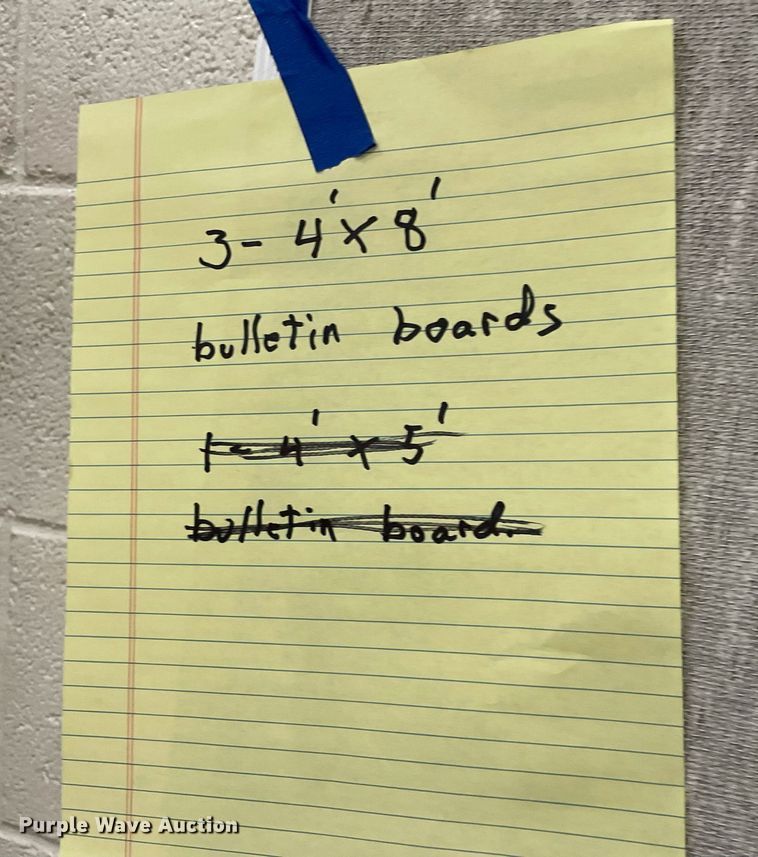 3- 4' x 8'
bulletin boards
1- 4' x 5'
bulletin board.
Purple Wave Auction